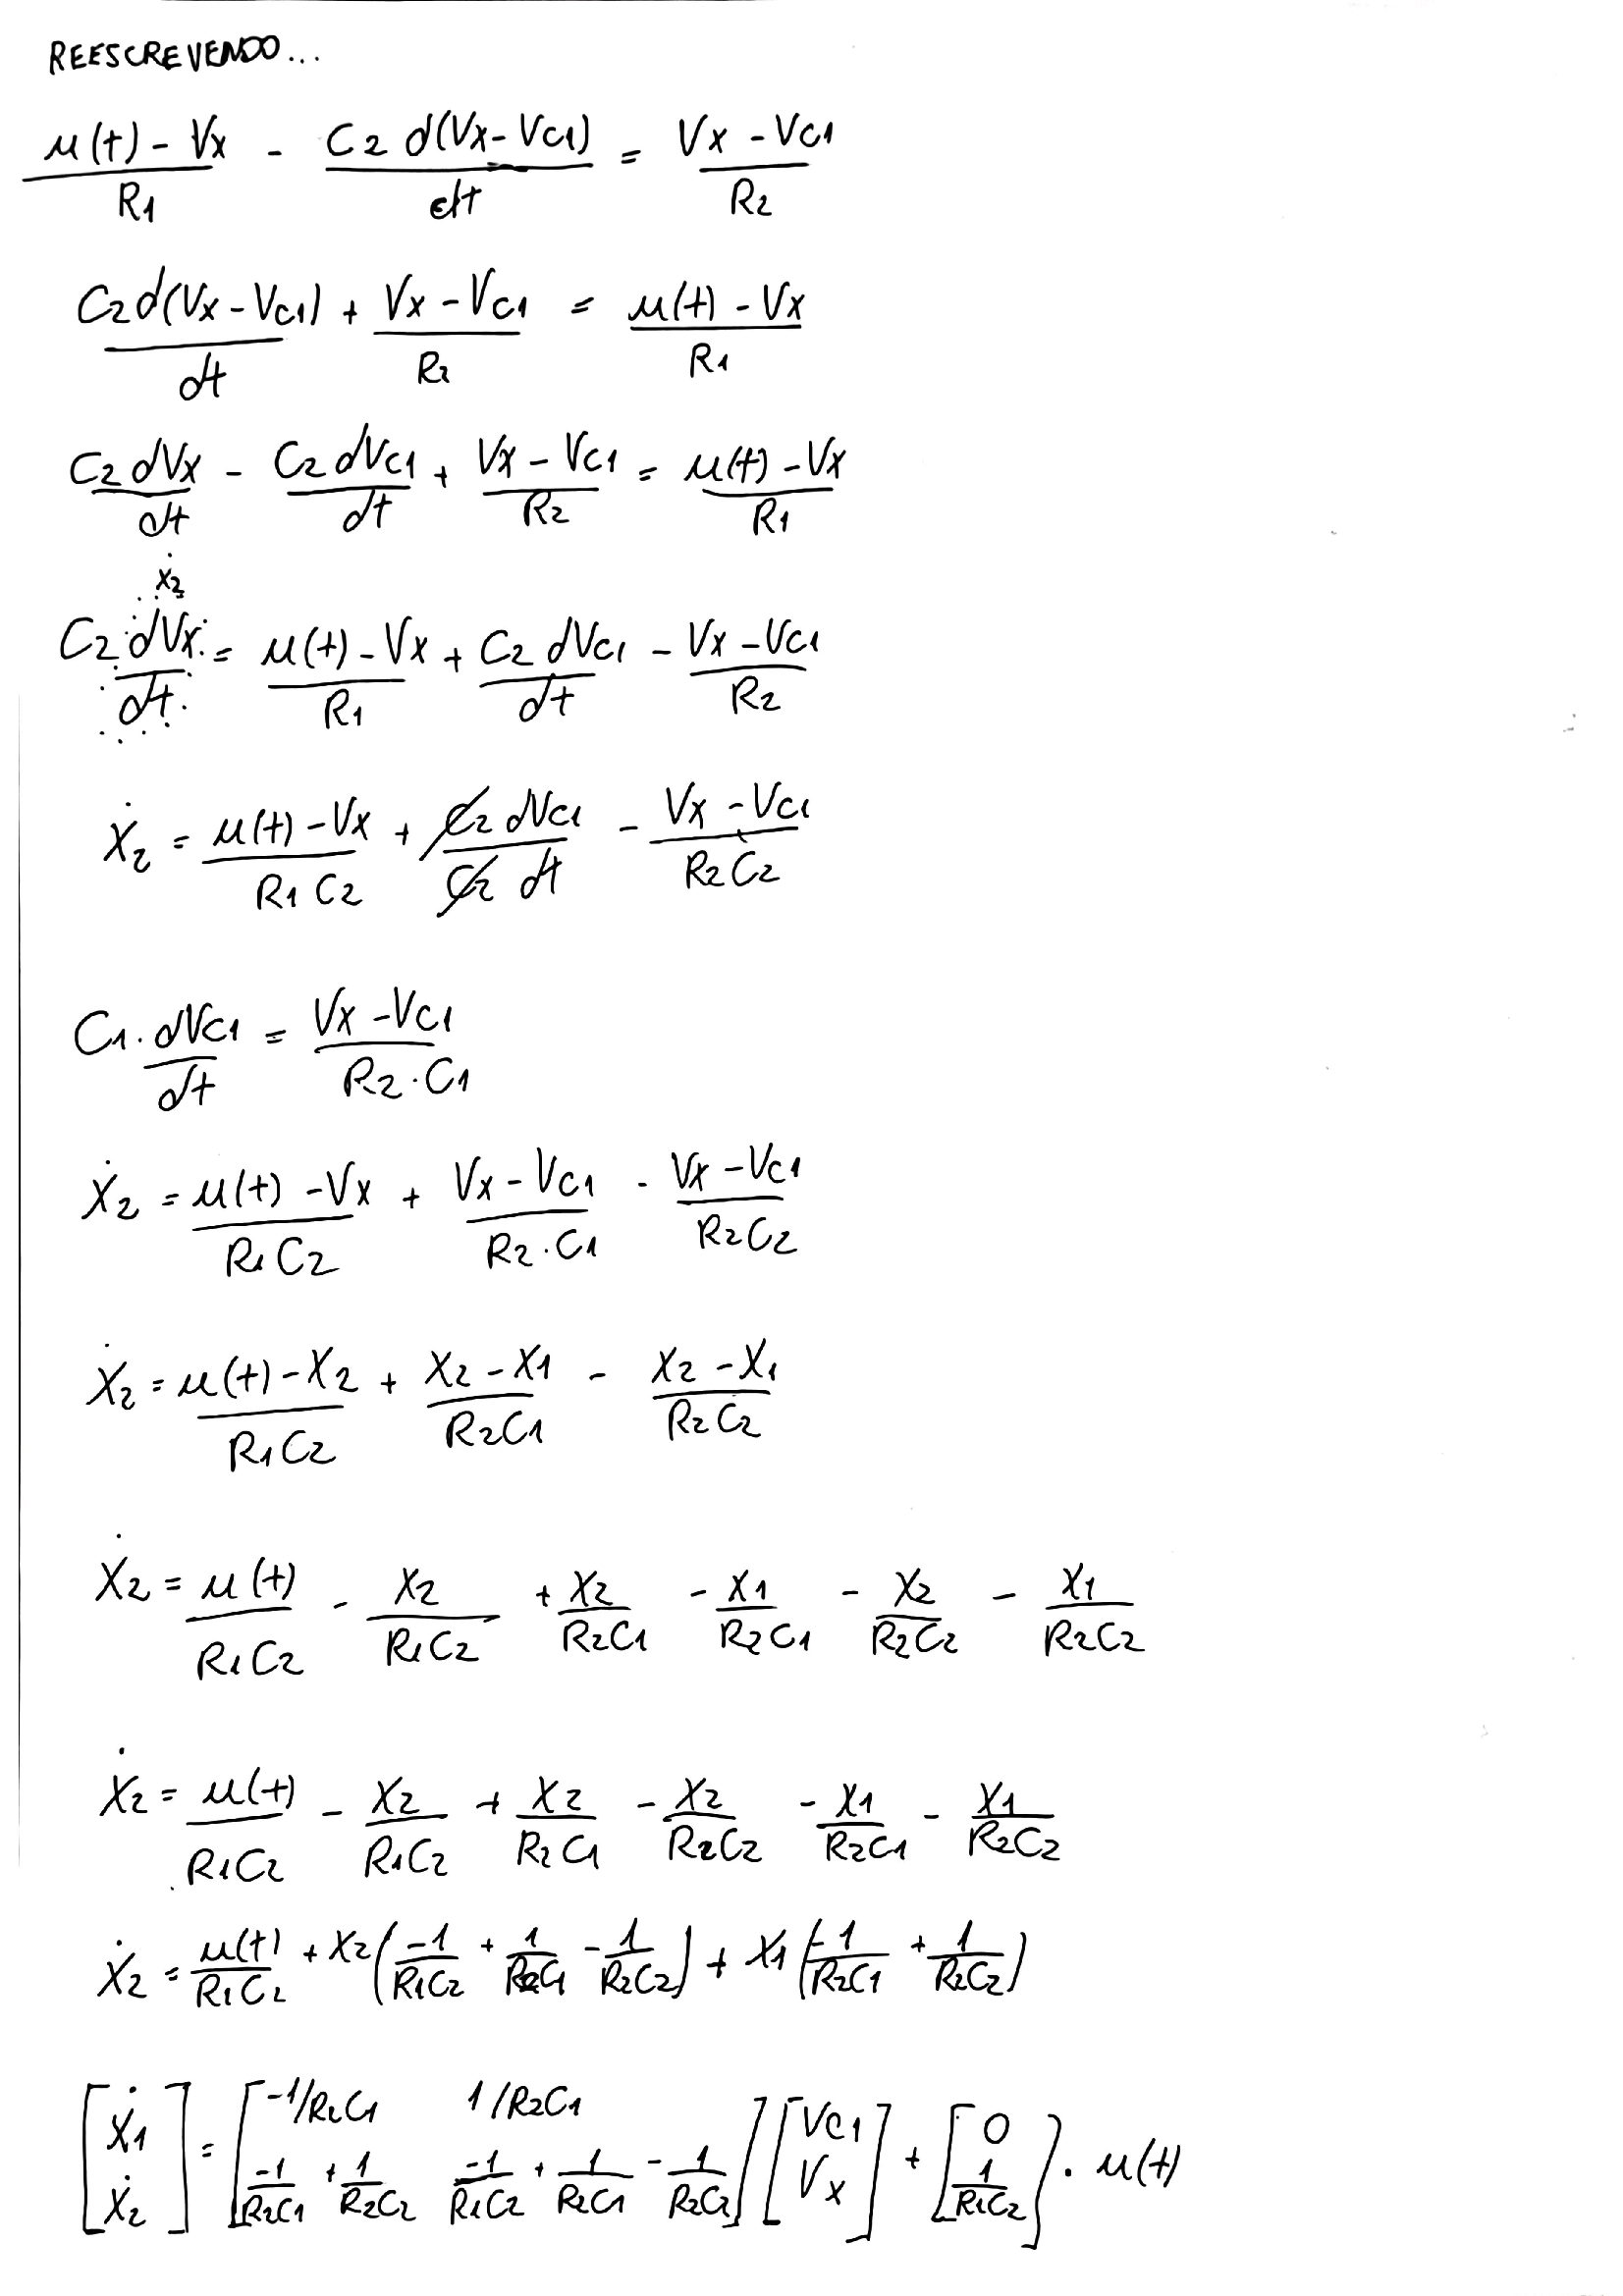 REESCREVENDO...
u(t) - Vx / R1 - C2 d(Vx - VC1) / dt = Vx - VC1 / R2
C2 d(Vx - VC1) / dt + Vx - VC1 / R2 = u(t) - Vx / R1
C2 dVx / dt - C2 dVC1 / dt + Vx - VC1 / R2 = u(t) - Vx / R1
ẋ2
C2 dVx / dt = u(t) - Vx / R1 + C2 dVC1 / dt - Vx - VC1 / R2
ẋ2 = u(t) - Vx / R1 C2 + C2 dVC1 / C2 dt - Vx - VC1 / R2 C2
C1 . dVC1 / dt = Vx - VC1 / R2 . C1
ẋ2 = u(t) - Vx / R1 C2 + Vx - VC1 / R2 . C1 - Vx - VC1 / R2 C2
ẋ2 = u(t) - x2 / R1C2 + x2 - x1 / R2C1 - x2 - x1 / R2C2
ẋ2 = u(t) / R1C2 - x2 / R1C2 + x2 / R2C1 - x1 / R2C1 - x2 / R2C2 - x1 / R2C2
ẋ2 = u(t) / R1C2 - x2 / R1C2 + x2 / R2C1 - x2 / R2C2 - x1 / R2C1 - x1 / R2C2
ẋ2 = u(t) / R1C2 + x2 (-1 / R1C2 + 1 / R2C1 - 1 / R2C2) + x1 (-1 / R2C1 + 1 / R2C2)
[ẋ1 ẋ2] = [-1/R2C1 1/R2C1 -1/R2C1 + 1/R2C2 -1/R1C2 + 1/R2C1 - 1/R2C2] [VC1 Vx] + [0 1/R1C2] . u(t)